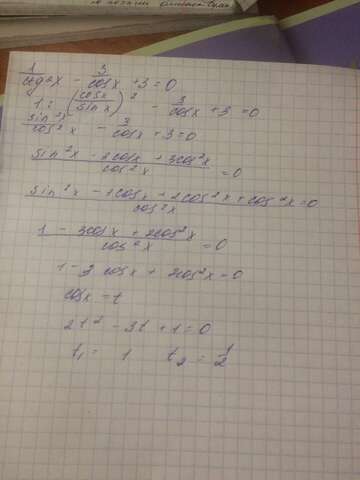 1/ctg²x - 3/cosx + 3 = 0
1 : (cosx/sinx)² - 3/cosx + 3 = 0
sin²x/cos²x - 3/cosx + 3 = 0
(sin²x - 3cosx + 3cos²x)/cos²x = 0
(sin²x - 3cosx + 2cos²x + cos²x)/cos²x = 0
(1 - 3cosx + 2cos²x)/cos²x = 0
1 - 3 cosx + 2cos²x = 0
cosx = t
2t² - 3t + 1 = 0
t₁ = 1 t₂ = 1/2